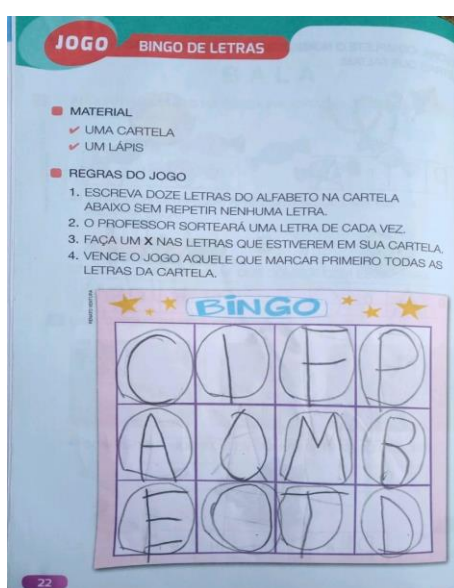 JOGO BINGO DE LETRAS
MATERIAL
✔ UMA CARTELA
✔ UM LÁPIS
REGRAS DO JOGO
1. ESCREVA DOZE LETRAS DO ALFABETO NA CARTELA
ABAIXO SEM REPETIR NENHUMA LETRA.
2. O PROFESSOR SORTEARÁ UMA LETRA DE CADA VEZ.
3. FAÇA UM X NAS LETRAS QUE ESTIVEREM EM SUA CARTELA.
4. VENCE O JOGO AQUELE QUE MARCAR PRIMEIRO TODAS AS
LETRAS DA CARTELA.
BINGO
C I F P
A Q M B
E O T D
22